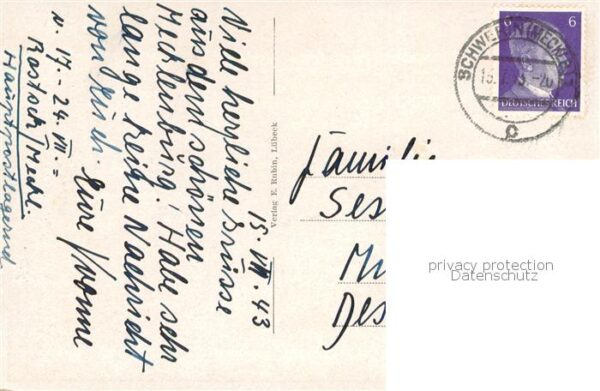 15. VII. 43
Viele herzliche Grüsse
aus dem schönen
Mecklenburg! Habe sehr
lange keine Nachricht
von Euch
Eure Yvonne
v. 17. - 24. VII. =
Rostock/Meckl.
Hauptpostlagernd
Verlag E. Rubin, Lübeck
SCHWERIN (MECKLB)
c
6 6
DEUTSCHES REICH
Familie
Ses
Mu
Des
privacy protection
Datenschutz